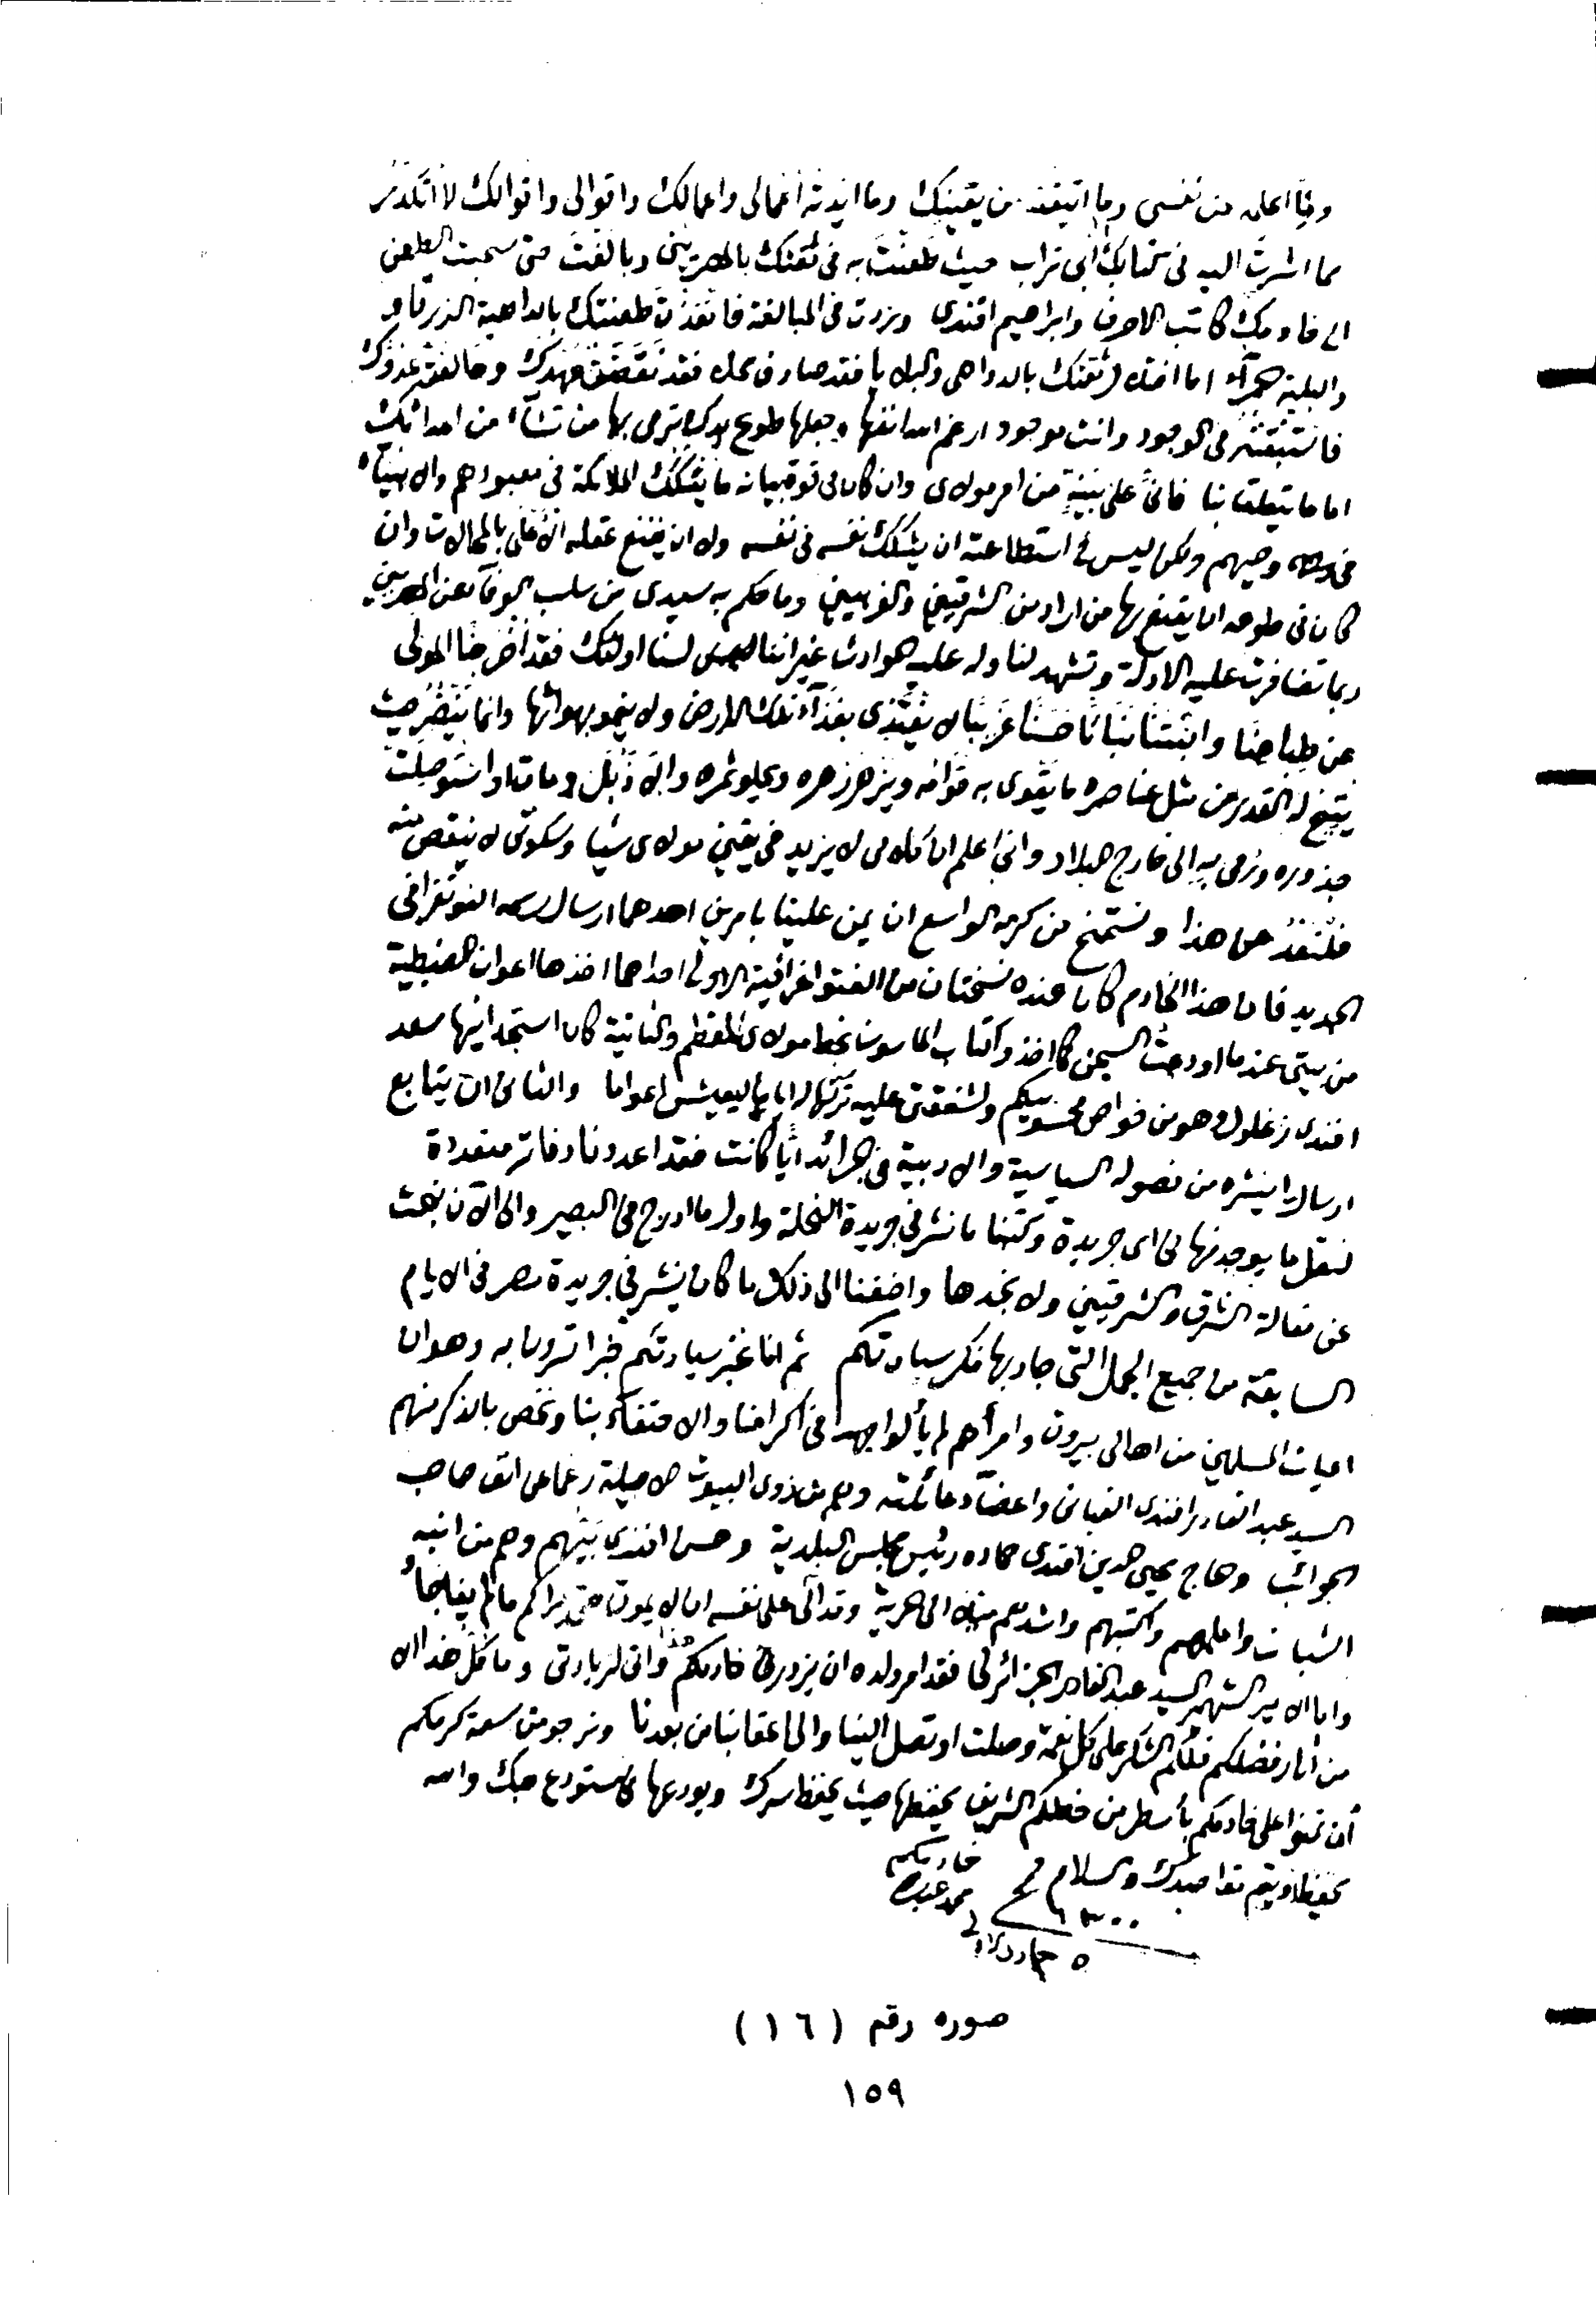 وبما اعلمه من نفسي وما اتيقنه من يقينك وما ايدته اعمالي واعمالك واقوالي واقوالك لا اتكدر
مما اشرت اليه في كتابك الى ابي تراب حيث طعنت به في ثقتك بالمصريين وبالغت حتى سحبت الطعن
الى خادمك كاتب الاحرف وابراهيم افندي وزدت في المبالغة فانفذت طعنتك بالداهية الزرقاء
والبلية اما ثقتك بالدواهي والبلايا فقد صادف محله فقد عهدك وحالفت عدوك
في الوجود وانت موجود ارغم الله انفها وجعلها طوع يدك ترمي بها من تشاء من اعدائك
اما ما يتعلق بنا فاني على بينة من امر مولاي وان كان في قوة بيانه ما يشكك الملائكة في معبودهم والانبياء
في وحيهم ولكن ليس في استطاعته ان يشكك نفسه في نفسه ولا ان يقنع عقله الاعلى بالمحالات وان
كان في طوعه ان يقنع بها من اراد من الشرقيين والغربيين وما حكم به سيدي من سلب الوفاء عن المصريين
ربما تضافرت عليه الادلة وتشهد لنا وله عليه حوادث غير اننا لسنا اولئك فقد اخرجنا المولى
عن طباعنا وانبتنا نباتا حسنا غريبا لا يغتذي بغذاء تلك الارض ولا ينمو بهوائها وانما ينتظر حيث
يتيح له القدر من مثل عناصره ما يقوى به قوامه ويزهر زهره ويحلو ثمره والا ذبل ومات او استوصلت
جذوره ورمى به الى خارج البلاد واني اعلم ان كلامي لا يزيد في يقين مولاي شيا وسكوتي لا ينقص منه
فلنعد عن هذا ونستمنح من كرمه الواسع ان يمن علينا بامرين احدهما ارسال رسمه الفوتغرافي
الجديد فان هذا الخادم كان عنده نسختان من الفتوغرافية الاولى احداهما اخذها اعوان الضبطية
من بيتي عندما اودعت السجن كما اخذوا كتاب الماسون بخط مولاي المعظم والثانية كان استجدانيها سعد
افندي زغلول وهو من خواص محسوبيكم ولشفقتي عليه تركتها له اياما ليعيش اعواما والثاني ان يتابع
ارسال ما ينشره من فصوله السياسية والادبية في الجرائد ايا كانت فقد اعددنا دفاتر متعددة
لنقل ما يوجد منها في اى جريدة وكتبنا ما نشر في جريدة النحلة واول ما ادرج في البصير والى الآن نبحث
عن مقالة الشرق والشرقيين ولا نجدها واضفنا الى ذلك ما كان ينشر في جريدة مصر في الايام
السابقة من جميع الجمل التي جاد بها فكر سيادتكم ثم انا نخبر سيادتكم خبرا تسرون به وهو ان
اعيان المسلمين من اهالي بيروت وامراهم لم يألوا جهدا في اكرامنا والاحتفاء بنا ونخص بالذكر منهم
السيد عبد القادر افندي القباني واعضاء عائلته وهم من ذوي البيوت الاصيلة رغما عن انف صاحب
الجوائب وحاج محيى الدين افندي حماده رئيس مجلس البلدية وحسن افندي بيهم وهم من انبه
الشبان واعلمهم واكتبهم واشدهم ميلا الى الحرية وقد آلى على نفسه ان لا يموت حتى يراكم ما لم يفاجأ
واما الامير الشهير السيد عبد القادر الجزائرلي فقد امر ولده ان يزور خادمكم واتى لزيارتي وما كل هذا الا
من آثار فضلكم فلكم الشكر على كل نعمة وصلت او تصل الينا والى اعقابنا من بعدنا ونرجو من سعة كرمكم
أن تمنوا على خادمكم بأسطر من خطكم الشريف يحفظها حيث يحفظ سرك ويودعها مستودع حبك والله
يحفظك ويتم مقاصدك والسلام
خادمكم
محمد عبده
١٣٠٠
٥ جمادى الاولى
صوره رقم (١٦)
١٥٩